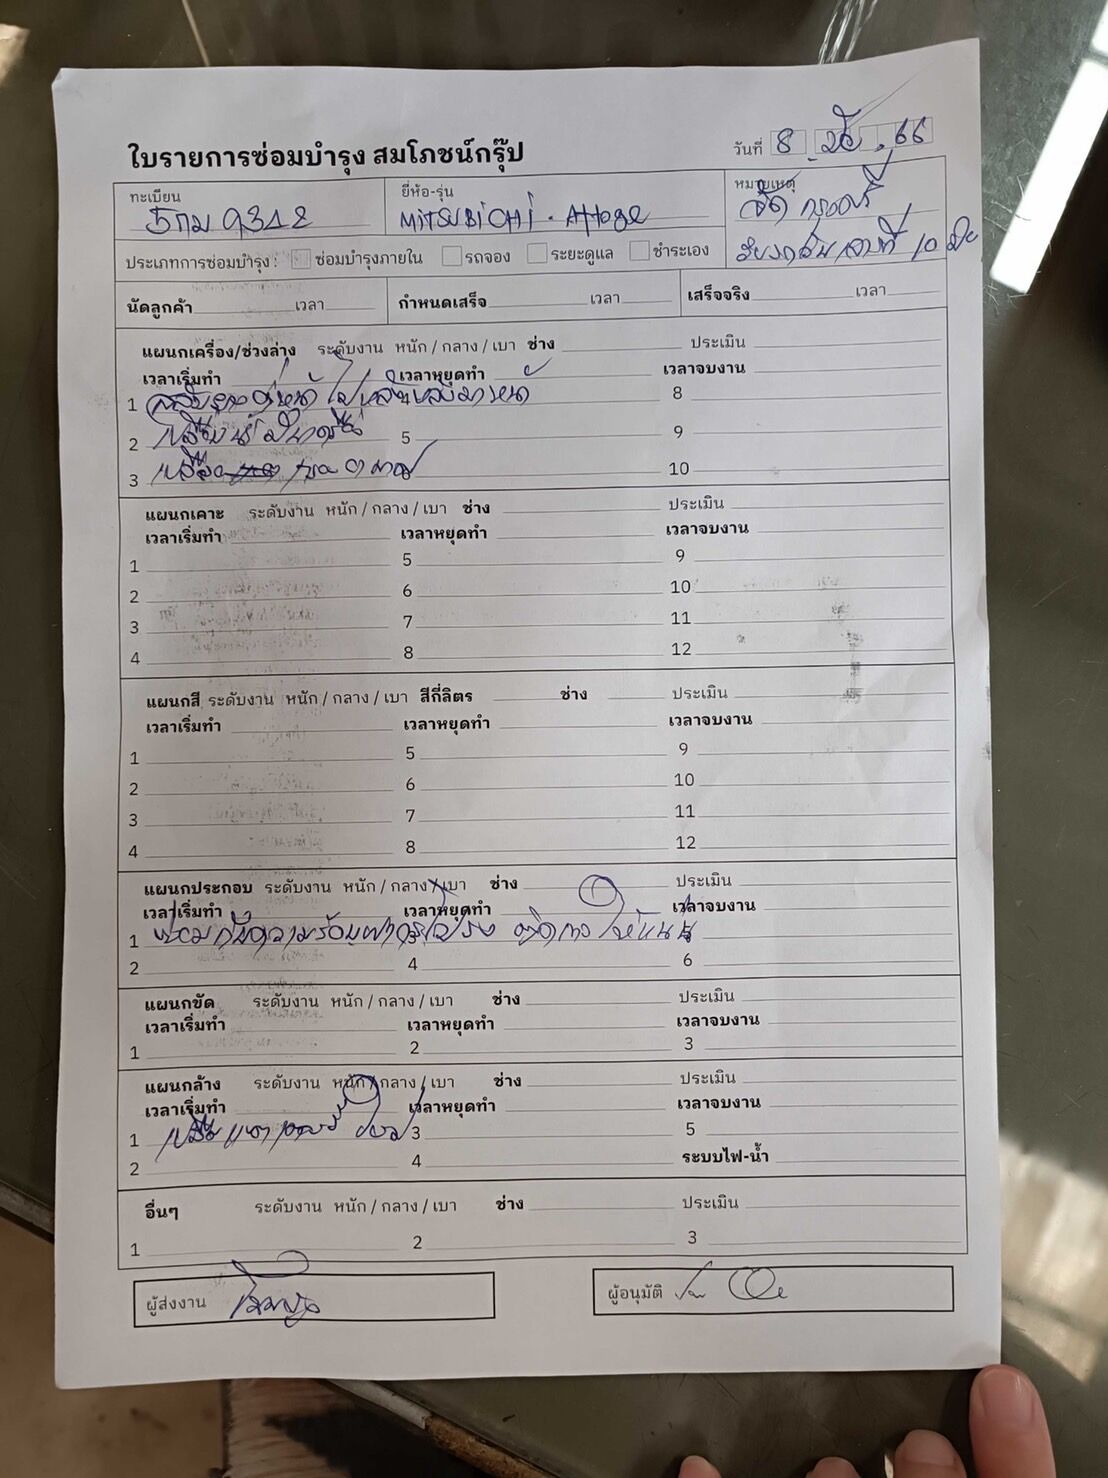 ใบรายการซ่อมบำรุง สมโภชน์กรุ๊ป
วันที่ 8 66
ทะเบียน
5กม 9312
ยี่ห้อ-รุ่น
MITSUBICHI. Attage
หมายเหตุ
จัด กรุงศรี
ที่ 10
ประเภทการซ่อมบำรุง : ซ่อมบำรุงภายใน รถจอง ระยะดูแล ชำระเอง
นัดลูกค้า เวลา กำหนดเสร็จ เวลา เสร็จจริง เวลา
แผนกเครื่อง/ช่วงล่าง ระดับงาน หนัก / กลาง / เบา ช่าง ประเมิน
เวลาเริ่มทำ เวลาหยุดทำ เวลาจบงาน
1 สลับยางคู่หน้าไปหลังหลังมาหน้า 4 8
2 เปลี่ยน 5 9
3 10
แผนกเคาะ ระดับงาน หนัก / กลาง / เบา ช่าง ประเมิน
เวลาเริ่มทำ เวลาหยุดทำ เวลาจบงาน
1 5 9
2 6 10
3 7 11
4 8 12
แผนกสี ระดับงาน หนัก / กลาง / เบา สีกี่ลิตร ช่าง ประเมิน
เวลาเริ่มทำ เวลาหยุดทำ เวลาจบงาน
1 5 9
2 6 10
3 7 11
4 8 12
แผนกประกอบ ระดับงาน หนัก / กลาง / เบา ช่าง 1 ประเมิน
เวลาเริ่มทำ เวลาหยุดทำ เวลาจบงาน
1 กันความร้อนฝากระโปรง ติดกาวให้แน่น 3
2 4 6
แผนกขัด ระดับงาน หนัก / กลาง / เบา ช่าง ประเมิน
เวลาเริ่มทำ เวลาหยุดทำ เวลาจบงาน
1 2 3
แผนกล้าง ระดับงาน หนัก / กลาง / เบา ช่าง ประเมิน
เวลาเริ่มทำ เวลาหยุดทำ เวลาจบงาน
1 เปลี่ยนแบตเตอรี่ 3 5
2 4 ระบบไฟ-น้ำ
อื่นๆ ระดับงาน หนัก / กลาง / เบา ช่าง ประเมิน
1 2 3
ผู้ส่งงาน
ผู้อนุมัติ